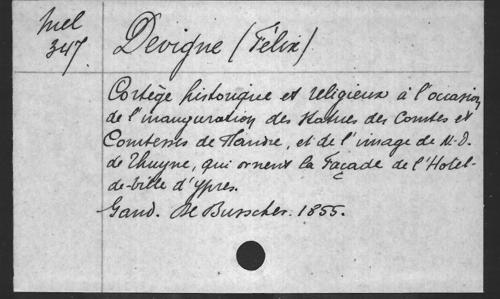 Mel
347.
Devigne (Félix)
Cortège historique et religieux à l'occasion
de l'inauguration des statues des Comtes et
Comtesses de Flandre, et de l'image de N.-D.
de Thuyne, qui ornent la façade de l'Hotel-
de-ville d'Ypres.
Gand. De Busscher. 1855.